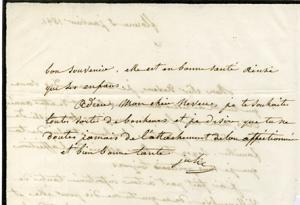 bon souvenir. elle est en bonne santé ainsi
que ses enfans.
Adieu, Mon cher Neveu, je te souhaite
toute sorte de bonheurs et je desire que tu ne
doutes jamais de l'attachement de ton affectionné
et bien bonne tante
Julie